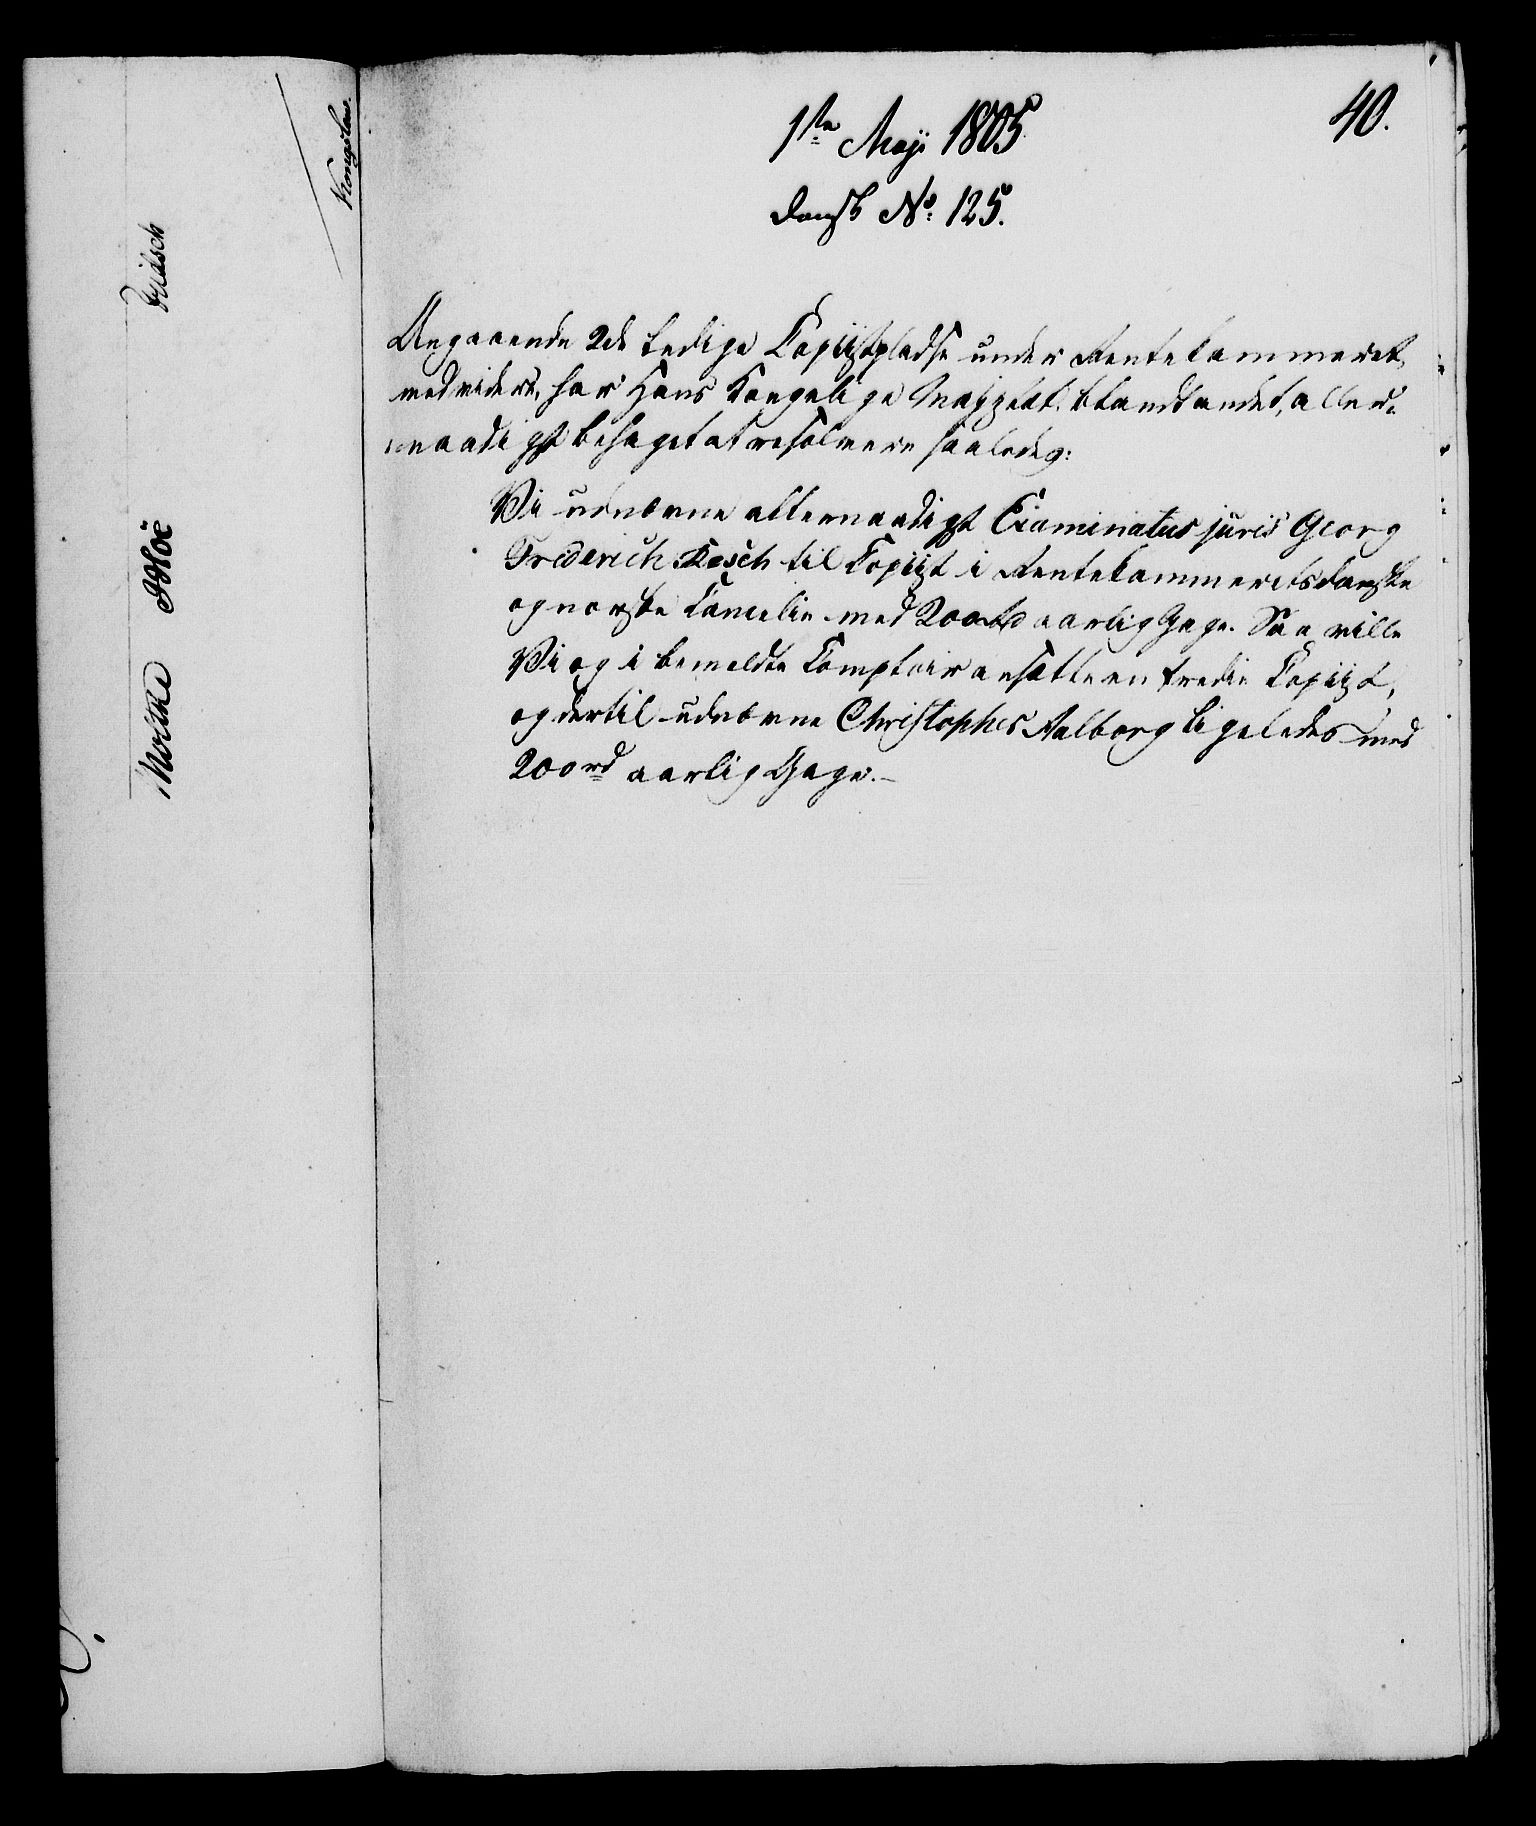 40.
1ste Maji 1805
dansk No: 125.
Angaaende 2de ledige Copiistpladse under Rentekammeret,
med videre, har Hans Kongelige Majestt. blandt andet, aller-
naadigst behaget at resolvere saaledes:
Vi udnævne allernaadigst Examinatus juris Georg
Frederich Resch til Copiist i Rentekammerets danske
og norske Cancelie med 200 rd aarlig Gage. Saa ville
Vi og i bemeldte Comptoir ansætte en tredie Copiist,
og dertil udnævne Christopher Aalborg ligeledes med
200 rd aarlig Gage.
Moltke